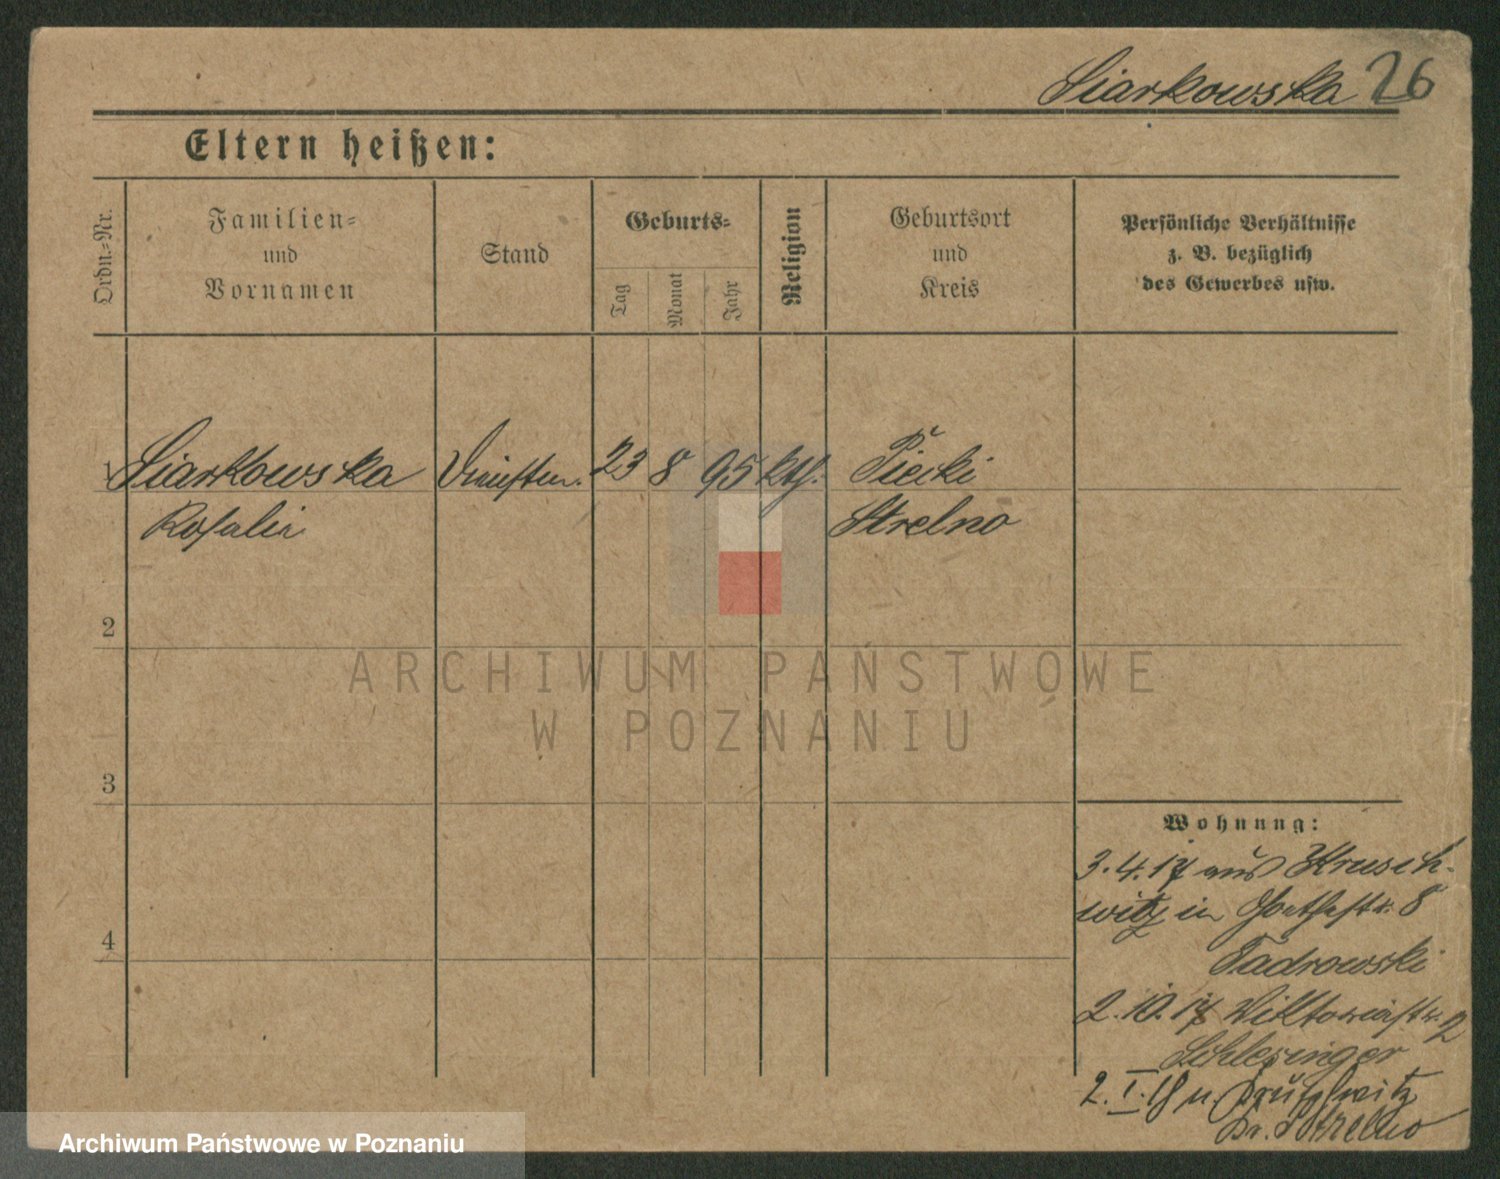 Siarkowska 26
Eltern heißen:
Ordn.-Nr.
Familien-
und
Vornamen
Stand
Geburts-
Tag
Monat
Jahr
Religion
Geburtsort
und
Kreis
Persönliche Verhältnisse
z. B. bezüglich
des Gewerbes usw.
1 Siarkowska 23 8 95 kth. Piecki
Rosalie Strelno
2
3
4
Wohnung:
3.4.17 aus Krusch-
witz in Goethestr. 8
Tadrowski
2.10.17 Wiktoriastr. 2
Schlesinger
2.I.18 n. Kruschwitz
Kr. Strelno
ARCHIWUM PAŃSTWOWE
W POZNANIU
Archiwum Państwowe w Poznaniu